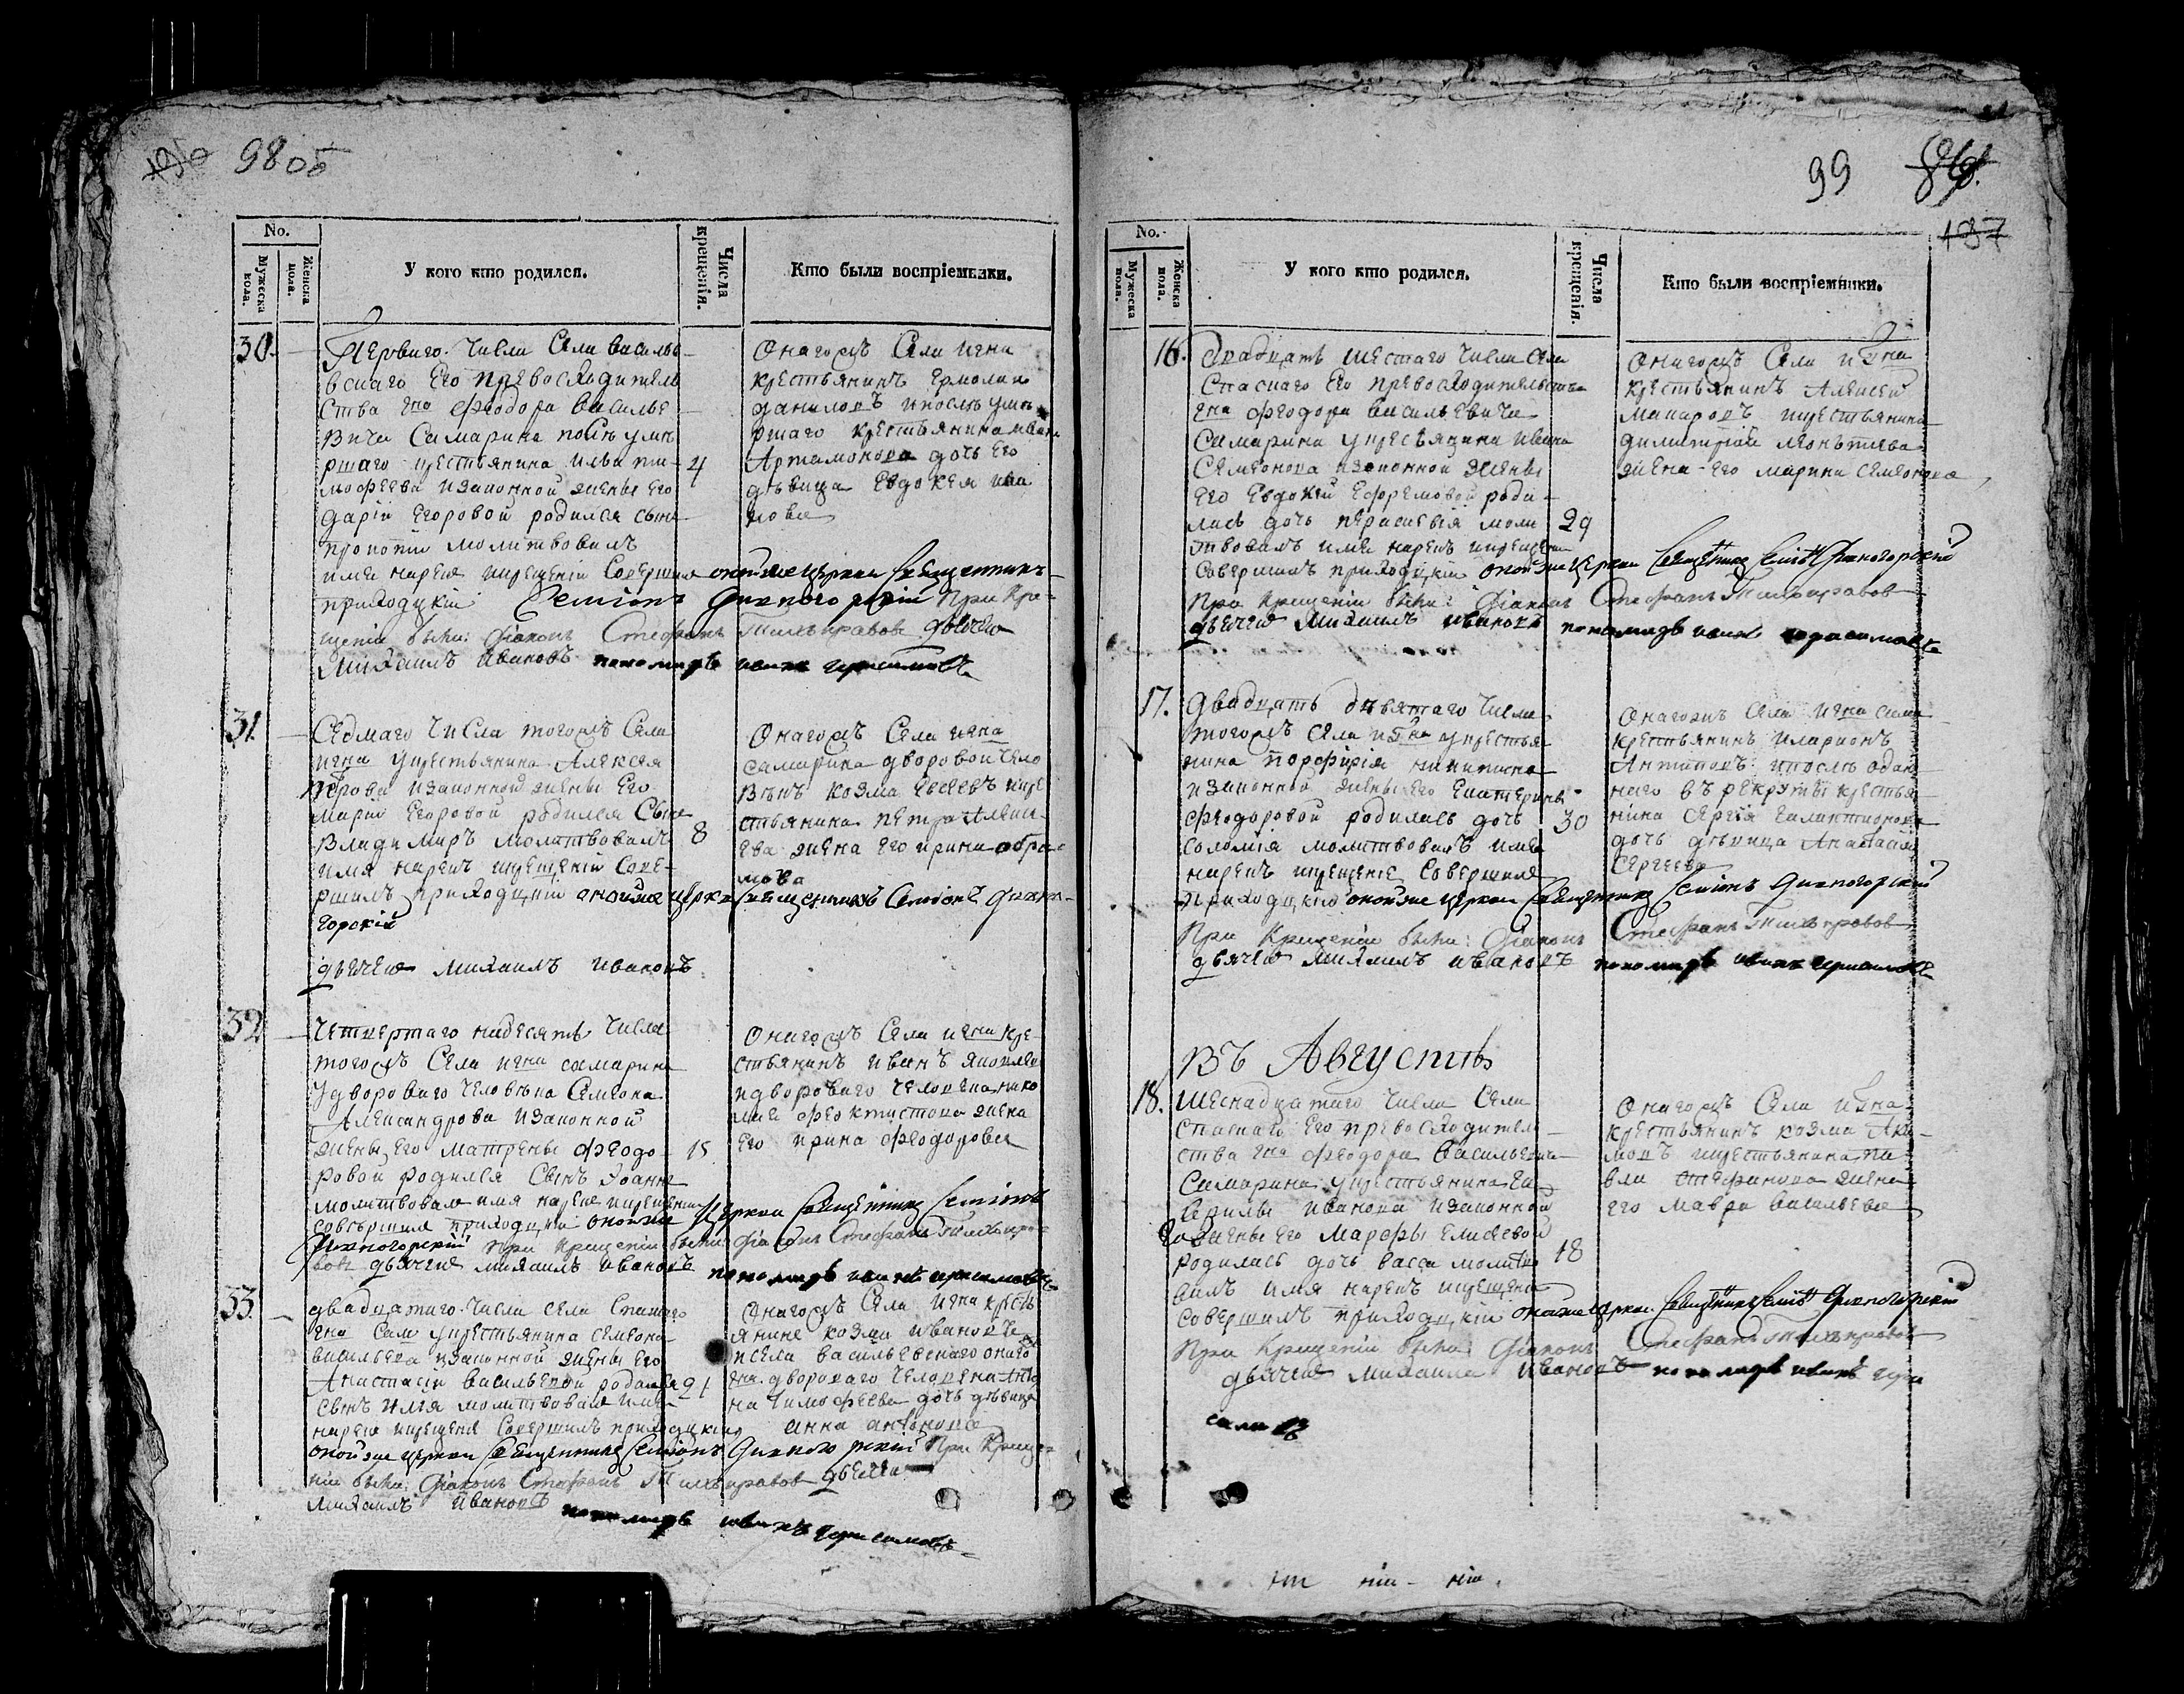 98 об
No.
Мужеска пола.
Женска пола.
У кого кто родился.
Числа крещенія.
Кто были воспріемники.
30.
Перваго числа Села василье
вскаго Его превосходитель
ства гна Феодора василье
вича Самарина послѣ уме
ршаго крестьянина
мофеева изаконной жены его
дарiи Егоровой родился сынъ
прокопiй молитвовалъ
имя нареч икрещенiи Совершил онойже церкви священникъ
приходцкiй Семiонъ Дивногорскiй При Кре
щенiи были: Дiаконъ Стефанъ Тихонравовъ дьячекъ
Михаилъ Ивановъ пономарь иванъ герасимовъ
4
Онагожъ Села игна
крестьянинъ Ермолай
даниловъ ипослѣ уме
ршаго крестьянина ивана
Артамонова дочь его
дѣвица Евдокея ива
нова
31.
Седмаго Числа тогожъ Села
игна укрестьянина Алексея
изаконной жены Его
марiи Егоровой родился Сынъ
Владимиръ молитвовалъ
имя нареч икрещенiй Сове
ршилъ приходцкiй онойже церкви священникъ Семiонъ Дивно
горскiй
дьячекъ Михаилъ Ивановъ
8
Онагожъ Села игна
самарина дворовой чело
вѣкъ козма Евсеевъ икре
стьянина петра Алекси
ева жена его ирина абра
мова
32
Четвертаго надесять числа
тогожъ Села игна самарина
Удворового человека Семена
Александрова изаконной
жены Его матрены Феодо
ровой родился Сынъ Iоаннъ
молитвовал имя нареч икрещенiи
совершил приходцкiй онойже церкви священникъ Семiонъ
Дивногорскiй при крещенiи были Дiаконъ Стефанъ Тихонра
вовъ дьячекъ михаилъ ивановъ пономарь иванъ герасимовъ
15
Онагожъ Села игна кре
стьянинъ иванъ яковлев
идворового человека нико
лая феоктистова жена
Его ирина феодорова
33.
двадцатаго числа села Спаского
гна Сам укрестьянина семена
васильева изаконной жены Его
Анастасiи васильевой родился
сынъ илiя молитвовал имя
нареч икрещенiе Совершилъ приходцкiй
онойже церкви священникъ Семiонъ Дивногорскiй При Креще
нiи были: Дiаконъ Стефанъ Тихонравовъ дьячекъ
Михаилъ Ивановъ пономарь иванъ герасимовъ
21
Онагожъ Села игна кресть
янине козма ивановъ
исела васильевскаго онаго
гна дворового человека анто
на тимофеева дочь дѣвица
анна антонова
99
137
No.
Мужеска пола.
Женска пола.
У кого кто родился.
Числа крещенія.
Кто были воспріемники.
16.
Двадцать шестаго числа Села
Спаскаго Его превосходительства
гна феодора васильевича
Самарина укрестьянина ивана
Семеонова изаконной жены
его Евдокiи Ефремовой роди
лась дочь параскевiя моли
твовалъ имя нареч икрещенiе
Совершилъ приходцкiй онойже церкви священникъ Семiонъ Дивногорскiй
При Крещенiи были: Дiаконъ Стефанъ Тихонравовъ
дьячекъ Михаилъ ивановъ пономарь иванъ герасимовъ
29
Онагожъ Села игна
крестьянинъ Алексей
макаровъ икрестьянина
димитрiя леонътьева
жена его марина семеонова
17.
двадцать девятаго числа
тогожъ села игна укрестья
нина порфирiя никитина
изаконной жены Его Екатерины
феодоровой родилась дочь
соломiя молитвовалъ имя
нареч икрещенiе Совершилъ
приходцкiй онойже церкви священникъ Семiонъ Дивногорскiй
При Крещенiи были: Дiаконъ Стефанъ Тихонравовъ
дьячекъ Михаилъ ивановъ пономарь иванъ герасимовъ
30
Онагожъ Села игна сама
крестьянинъ иларионъ
Антиповъ ипослѣ отдан
наго въ рекруты крестья
нина Сергiя Галактионова
дочь дѣвица Анастасiя
Сергеева
Въ Августѣ
18.
шеснадцатаго числа Села
Спаскаго Его превосходитель
ства гна феодора васильевича
Самарина укрестьянина Га
врилы иванова изаконной
жены его марфы Елисеевой
родилась дочь васса молитво
валъ имя нареч икрещенiе
совершилъ приходцкiй онойже церкви священникъ Семiонъ Дивногорскiй
При Крещенiи были: Дiаконъ Стефанъ Тихонравовъ
дьячекъ михаила ивановъ пономарь иванъ гера
симовъ
18
Онагожъ Села игна
крестьянинъ козма Аки
мовъ икрестьянина па
вла стефанова жена
его мавра васильева